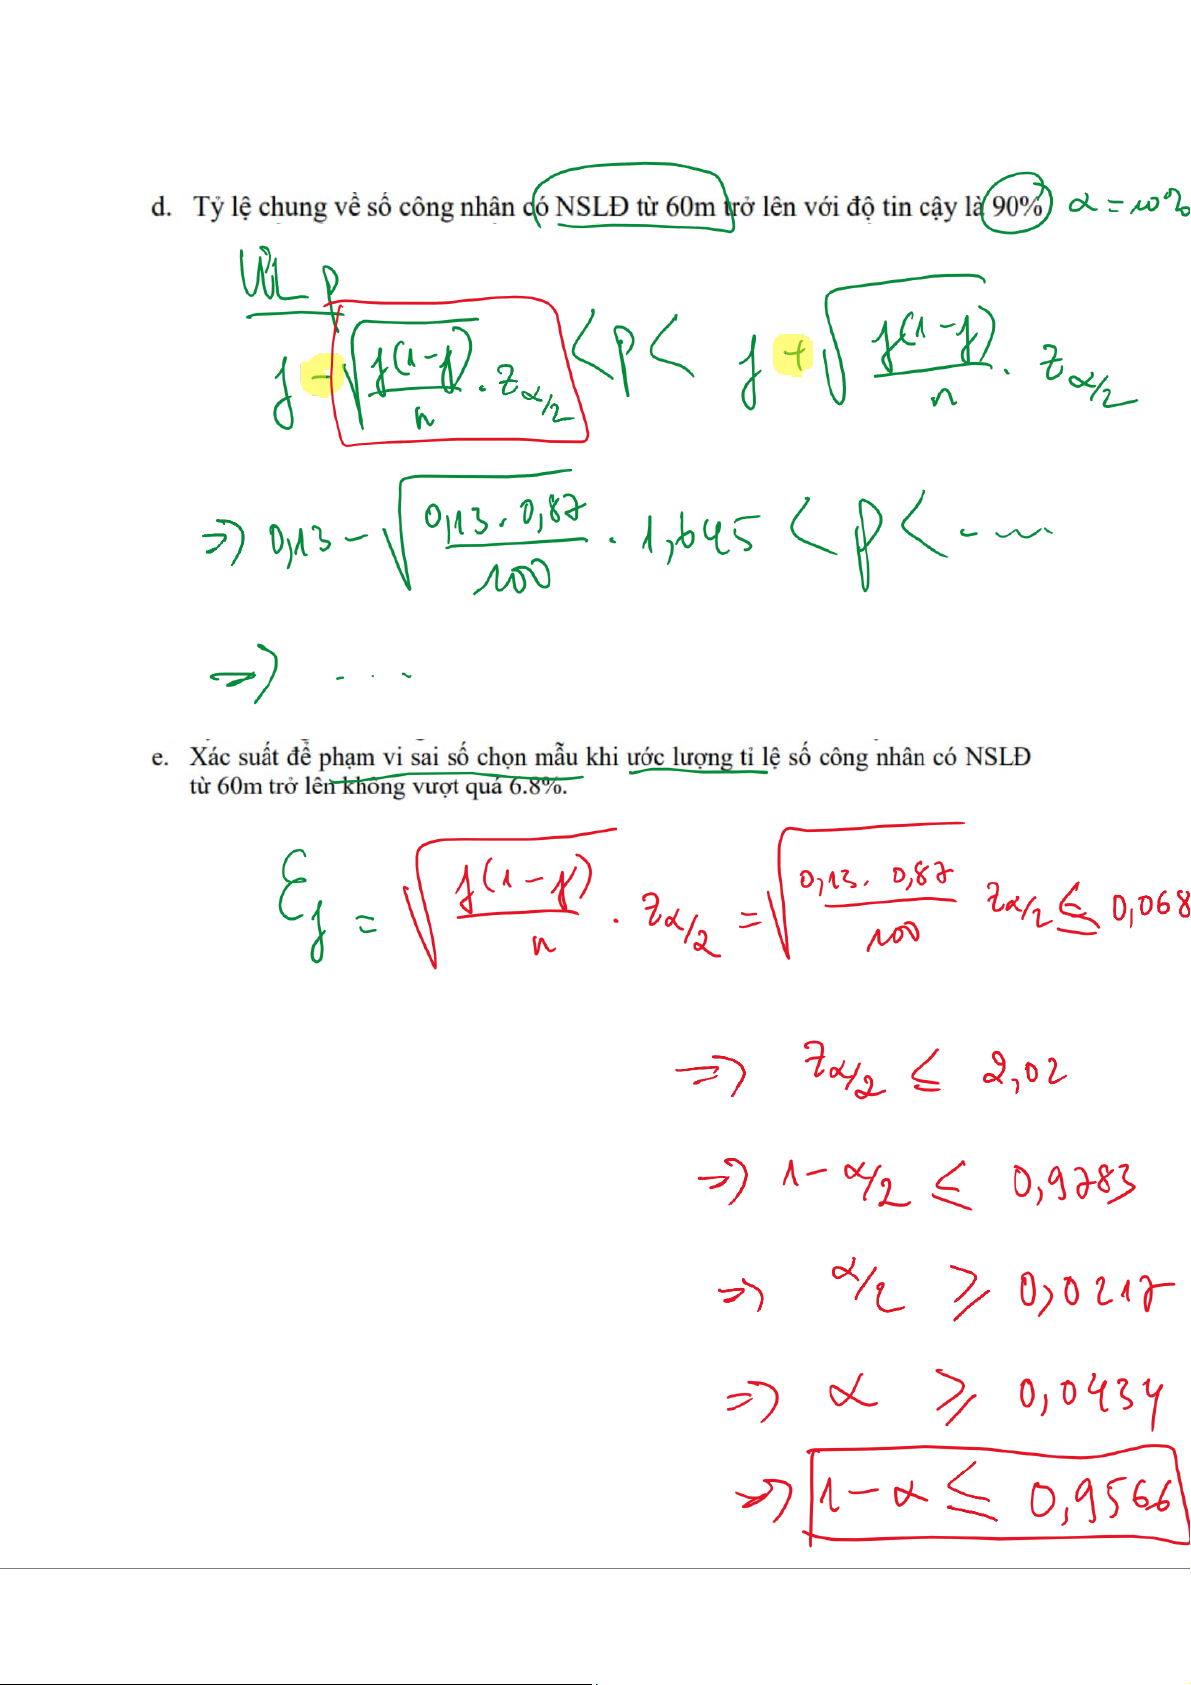 d. Tỷ lệ chung về số công nhân có NSLĐ từ 60m trở lên với độ tin cậy là 90% α = 10%
ƯL p
f - √(f(1-f)/n) . z_α/2 < p < f + √(f(1-f)/n) . z_α/2
=> 0,13 - √(0,13 . 0,87/100) . 1,645 < p < ....
=> ...
e. Xác suất để phạm vi sai số chọn mẫu khi ước lượng tỉ lệ số công nhân có NSLĐ
từ 60m trở lên không vượt quá 6.8%.
ε_f = √(f(1-f)/n) . z_α/2 = √(0,13 . 0,87/100) z_α/2 ≤ 0,068
=> z_α/2 ≤ 2,02
=> 1 - α/2 ≤ 0,9783
=> α/2 ≥ 0,0217
=> α ≥ 0,0434
=> 1 - α ≤ 0,9566